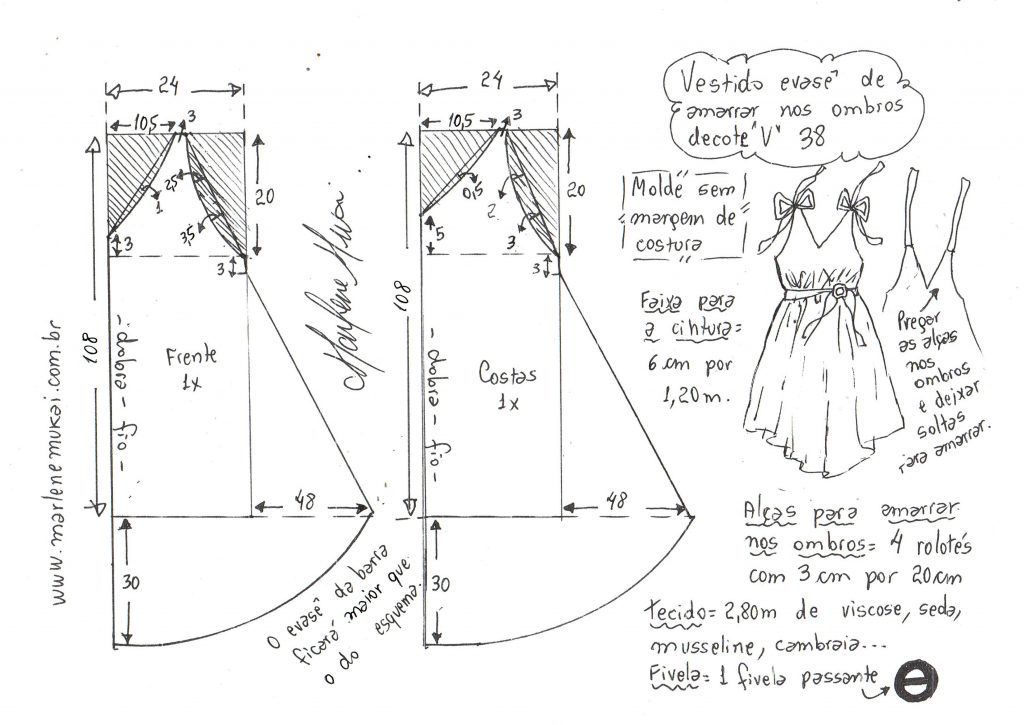 Vestido evasê de
amarrar nos ombros
decote "V" 38
Molde sem
margem de
costura
Faixa para
a cintura=
6 cm por
1,20m.
Pregar
as alças
nos
ombros
e deixar
soltas
para amarrar.
Alças para amarrar
nos ombros= 4 rolotés
com 3 cm por 20 cm
tecido= 2,80m de viscose, seda,
musseline, cambraia...
Fivela= 1 fivela passante
24
10,5
3
20
1
2,5
3,5
3
3
108
- dobra - fio -
Frente
1x
48
30
O evasê da barra
ficará maior que
o do esquema.
24
10,5
3
20
0,5
2
3
5
3
108
- dobra - fio -
Costas
1x
48
30
Marlene Mukai
www.marlenemukai.com.br